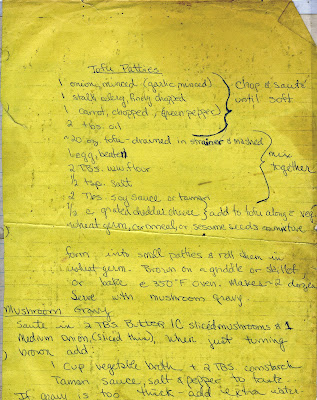 Tofu Patties
1 onion, minced (garlic, minced)
1 stalk celery, finely chopped
1 carrot, chopped (green pepper)
2 tbs. oil
chop & sauté
until soft
~20 oz tofu - drained in strainer & mashed
1 egg, beaten
2 TBS. ww flour
1/2 tsp. salt
2 Tbs. soy sauce or tamari
mix
together
1/2 c grated cheddar cheese } add to tofu along c veg.
wheat germ, cornmeal, or sesame seeds
form into small patties & roll them in
wheat germ. Brown on a griddle or skillet
or bake @ 350°F oven. Makes ~2 dozen
Serve with mushroom gravy
Mushroom Gravy
Saute in 2 TBS Butter 1C sliced mushrooms & 1
Medium Onion, (sliced thin), when just turning
brown add:
1 Cup vegetable broth + 2 TBS cornstarch
Tamari sauce, salt & pepper to taste
If gravy is too thick - add extra water.